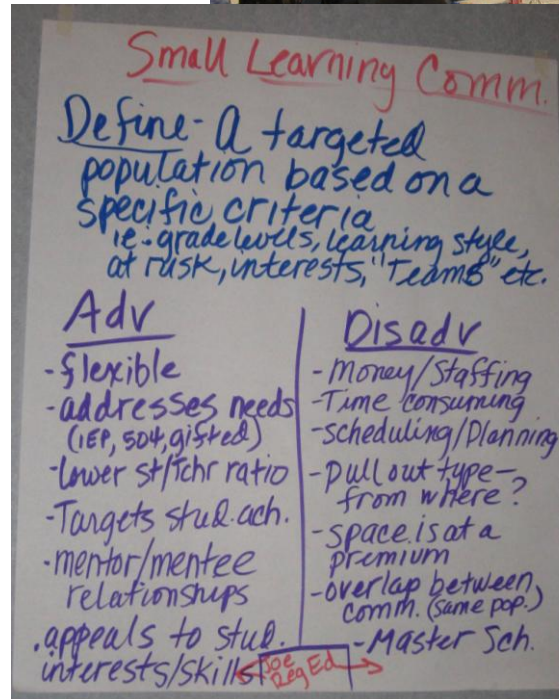 Small Learning Comm.
Define - A targeted
population based on a
specific criteria
ie. - grade levels, learning style,
at risk, interests, "Teams" etc.
Adv
- flexible
- addresses needs
(IEP, 504, gifted)
- Lower st/Tchr ratio
- Targets stud. ach.
- mentor/mentee
relationships
. appeals to stud.
interests/skills
Disadv
- Money/Staffing
- Time consuming
- scheduling/Planning
- pull out type -
from where?
- space is at a
premium
- overlap between
comm. (same pop.)
- Master Sch.
Joe
Reg Ed